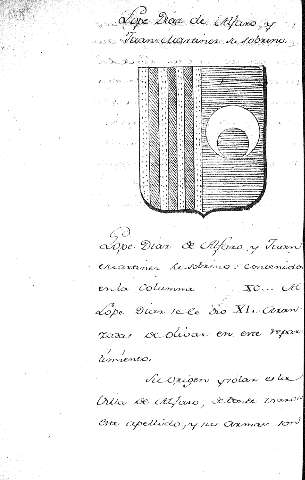 Lope Diaz de Alfaro, y
Juan Martinez su sobrino.
Lope Diaz de Alfaro y Juan
Martinez su sobrino: contenidos
en la columna XC... Al
Lope Diaz se le dio XI. Aran
zadas de olivar en este repar
timiento.
Su origen y solar es la
Villa de Alfaro, de donde tomaron
este apellido, y sus Armas son